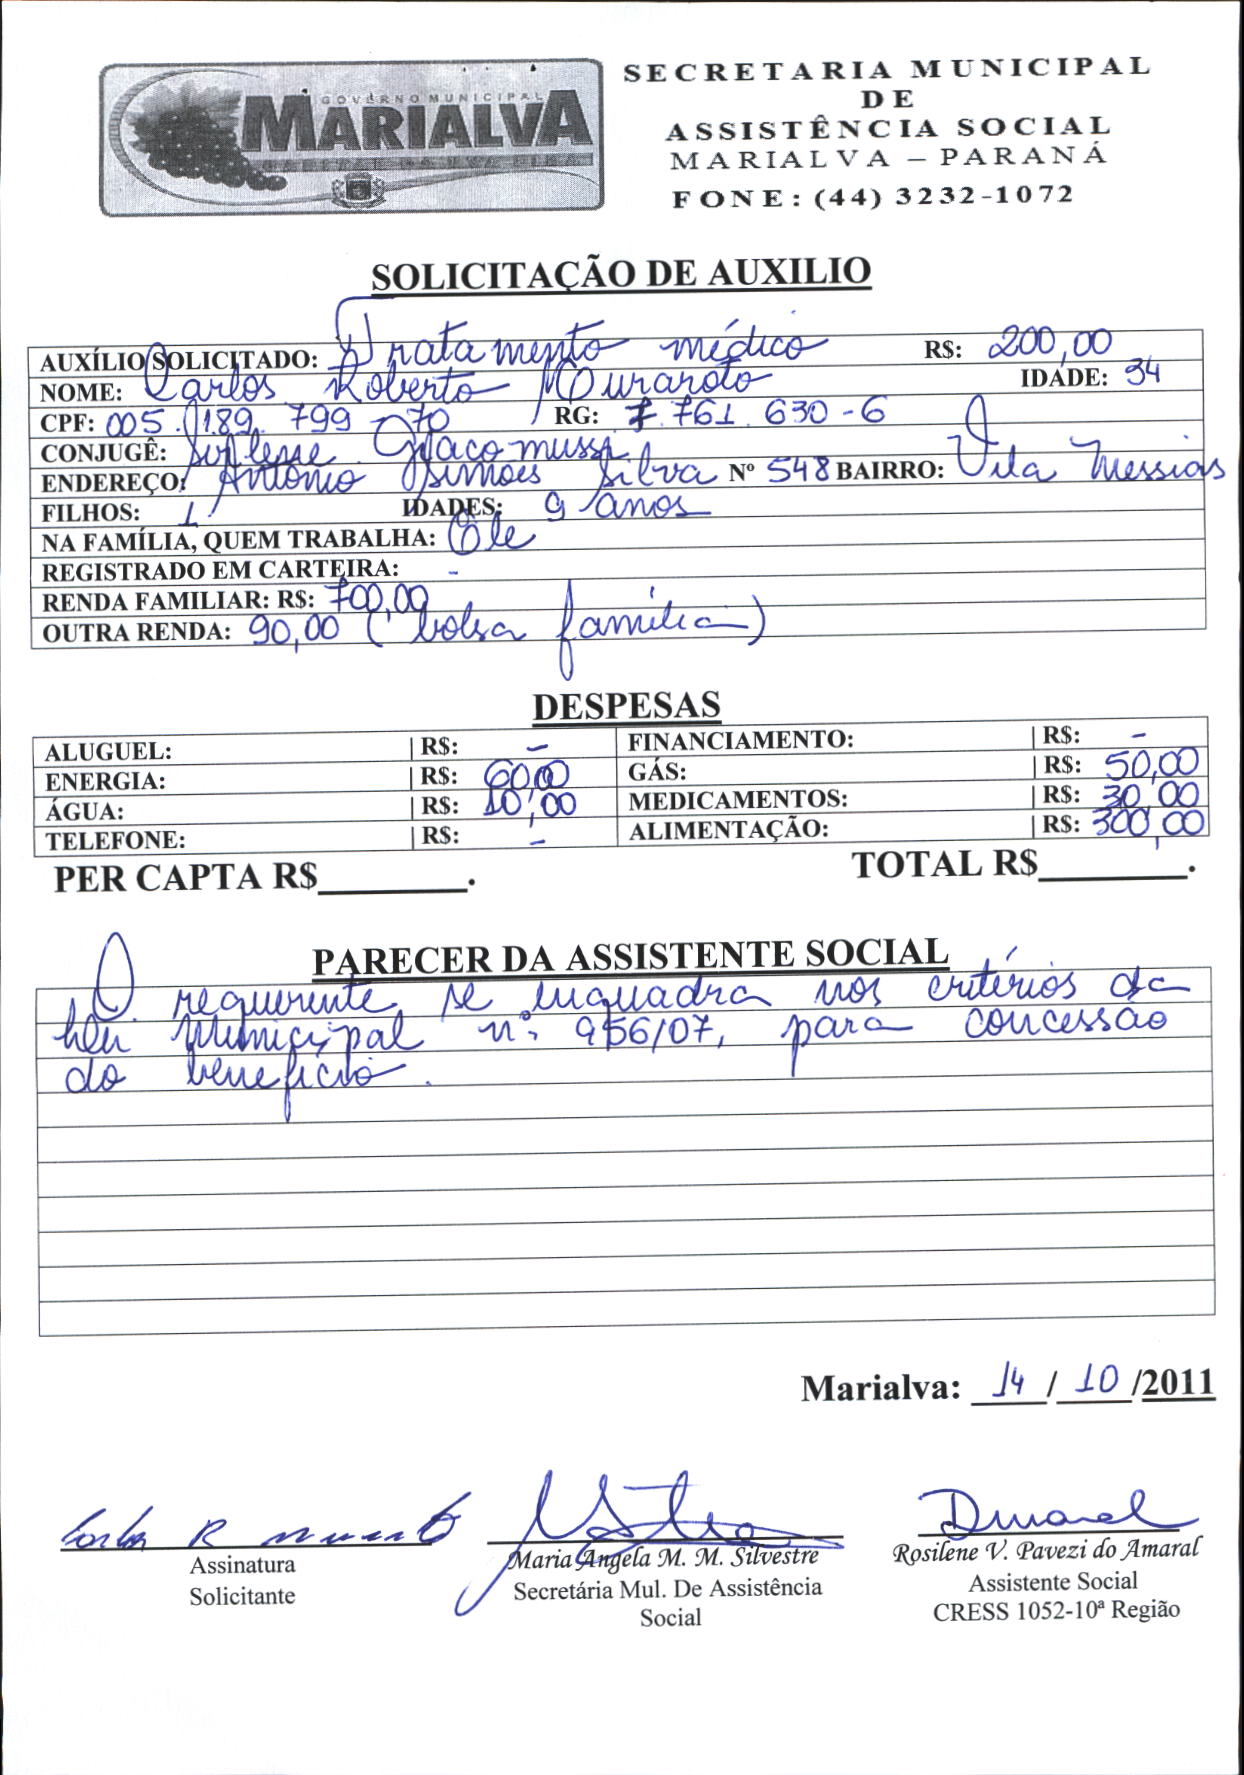 GOVERNO MUNICIPAL
MARIALVA
SECRETARIA MUNICIPAL
DE
ASSISTÊNCIA SOCIAL
MARIALVA – PARANÁ
FONE: (44) 3232-1072
SOLICITAÇÃO DE AUXILIO
AUXÍLIO SOLICITADO: Tratamento médico R$: 200,00
NOME: Carlos Roberto Muraroto IDADE: 34
CPF: 005.189.799-70 RG: 7.761.630-6
CONJUGÊ: Giacomussi
ENDEREÇO: Antônio Simões Silva Nº 548 BAIRRO: Vila Messias
FILHOS: 1 IDADES: 9 anos
NA FAMÍLIA, QUEM TRABALHA: Ele
REGISTRADO EM CARTEIRA: -
RENDA FAMILIAR: R$: 700,00
OUTRA RENDA: 90,00 (bolsa família)
DESPESAS
ALUGUEL: | R$: - FINANCIAMENTO: | R$: -
ENERGIA: | R$: 60,00 GÁS: | R$: 50,00
ÁGUA: | R$: 10,00 MEDICAMENTOS: | R$: 30,00
TELEFONE: | R$: - ALIMENTAÇÃO: | R$: 300,00
PER CAPTA R$________. TOTAL R$________.
PARECER DA ASSISTENTE SOCIAL
O requerente se enquadra nos critérios da
Lei Municipal nº 956/07, para concessão
do benefício.
Marialva: 14/10/2011
Assinatura
Solicitante
Maria Angela M. M. Silvestre
Secretária Mul. De Assistência
Social
Rosilene V. Pavezi do Amaral
Assistente Social
CRESS 1052-10ª Região